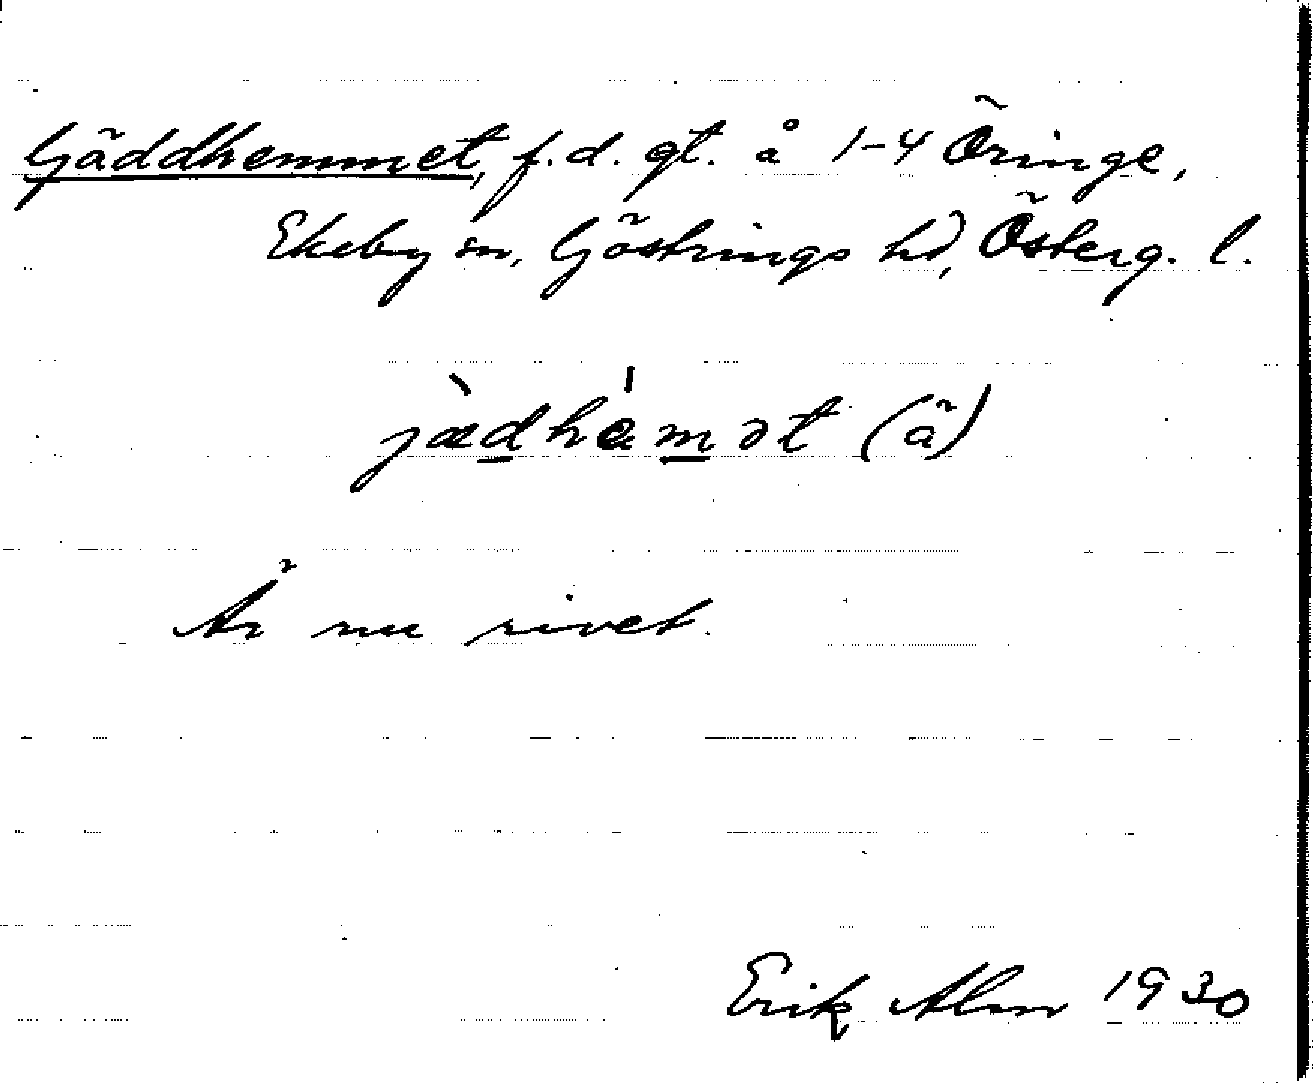 Gäddhemmet, f.d. gt. å 1-4 Öringe,
Ekeby sn, Göstrings hd, Österg. l.
jæ̀dhámət (ä)
Är nu rivet.
Erik Alm 1930